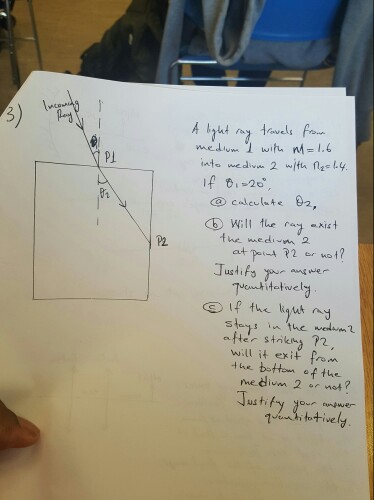 3)
Incoming
Ray
θ₁
P1
θ₂
P2
A light ray travels from
medium 1 with n1=1.6
into medium 2 with n₂=1.4.
If θ₁=20°,
ⓐ calculate θ₂,
ⓑ Will the ray exist
the medium 2
at point P2 or not?
Justify your answer
quantitatively.
ⓒ If the light ray
stays in the medium 2
after striking P2,
will it exit from
the bottom of the
medium 2 or not?
Justify your answer
quantitatively.